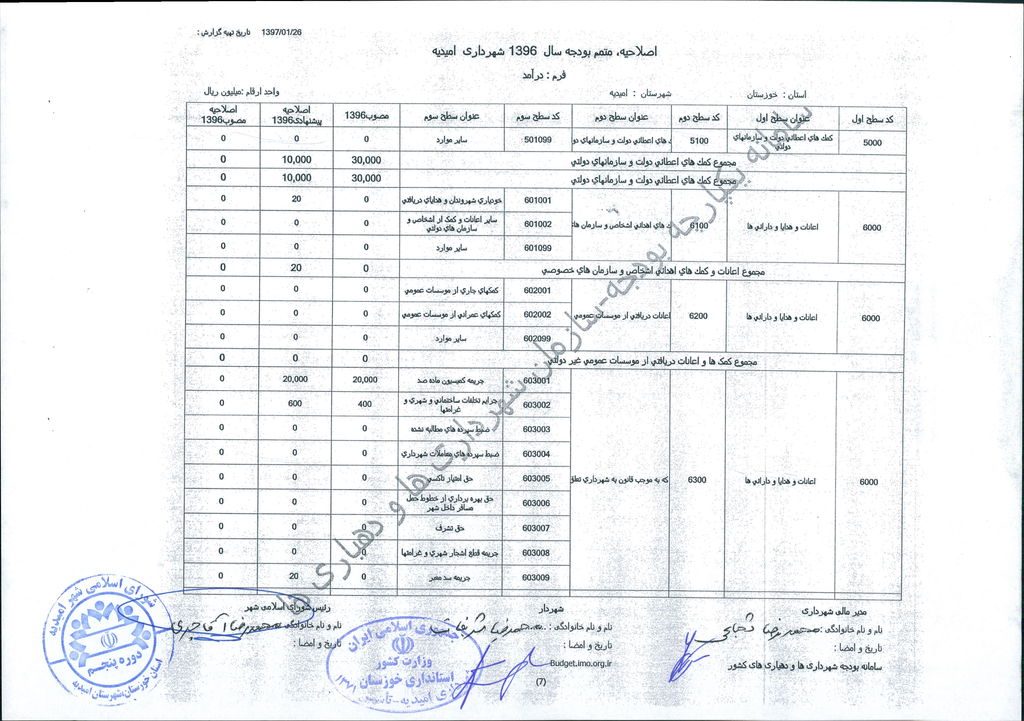 تاریخ تهیه گزارش : 1397/01/26
اصلاحیه، متمم بودجه سال 1396 شهرداری امیدیه
فرم : درآمد
استان : خوزستان شهرستان : امیدیه واحد ارقام :میلیون ریال
کد سطح اول عنوان سطح اول کد سطح دوم عنوان سطح دوم کد سطح سوم عنوان سطح سوم مصوب1396 اصلاحیه پیشنهادی1396 اصلاحیه مصوب1396
5000 كمك هاي اعطائي دولت و سازمانهاي دولتي 5100 هاي اعطائي دولت و سازمانهاي دو 501099 ساير موارد 0 0 0
مجموع كمك هاي اعطائي دولت و سازمانهاي دولتي 30,000 10,000 0
مجموع كمك هاي اعطائي دولت و سازمانهاي دولتي 30,000 10,000 0
6000 اعانات و هدايا و دارائي ها 6100 هاي اهدائي اشخاص و سازمان ها 601001 خودياري شهروندان و هداياي دريافتي 0 20 0
601002 ساير اعانات و كمک از اشخاص و سازمان هاي دولتي 0 0 0
601099 ساير موارد 0 0 0
مجموع اعانات و كمک هاي اهدائي اشخاص و سازمان هاي خصوصي 0 20 0
6000 اعانات و هدايا و دارائي ها 6200 اعانات دريافتي از موسسات عمومي 602001 كمکهاي جاري از موسسات عمومي 0 0 0
602002 كمکهاي عمراني از موسسات عمومي 0 0 0
602099 ساير موارد 0 0 0
مجموع كمک ها و اعانات دريافتي از موسسات عمومي غير دولتي 0 0 0
6000 اعانات و هدايا و دارائي ها 6300 كه به موجب قانون به شهرداري تعلق 603001 جريمه كميسيون ماده صد 20,000 20,000 0
603002 جرايم تخلفات ساختماني و شهري و غرامتها 400 600 0
603003 ضبط سپرده هاي مطالبه نشده 0 0 0
603004 ضبط سپرده هاي معاملات شهرداري 0 0 0
603005 حق امتياز تاكسي 0 0 0
603006 حق بهره برداري از خطوط حمل مسافر داخل شهر 0 0 0
603007 حق تشرف 0 0 0
603008 جريمه قطع اشجار شهري و غرامتها 0 0 0
603009 جريمه سد معبر 0 20 0
سامانه یکپارچه بودجه-سازمان شهرداری ها و دهیاری ها
مدیر مالی شهرداری شهردار رئیس شورای اسلامی شهر
نام و نام خانوادگی : محمدرضا نام و نام خانوادگی : محمدرضا نام و نام خانوادگی : محمدرضا آقاجری
تاریخ و امضا : تاریخ و امضا : تاریخ و امضا :
سامانه بودجه شهرداری ها و دهیاری های کشور Budget.imo.org.ir
(7)
شورای اسلامی شهر امیدیه
دوره پنجم
استان خوزستان،شهرستان امیدیه
شهرداری اسلامی ایران
وزارت کشور
استانداری خوزستان